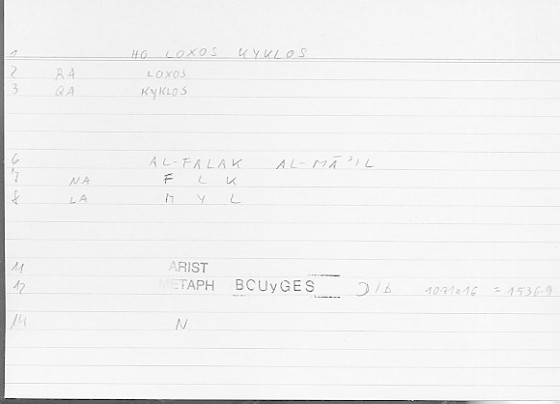 1 HO LOXOS KYKLOS
2 RA LOXOS
3 QA KYKLOS
6 AL-FALAK AL-MĀʾIL
7 NA F L K
8 LA M Y L
11 ARIST
12 METAPH BOUyGES 1071a16 = 1536.9
14 N